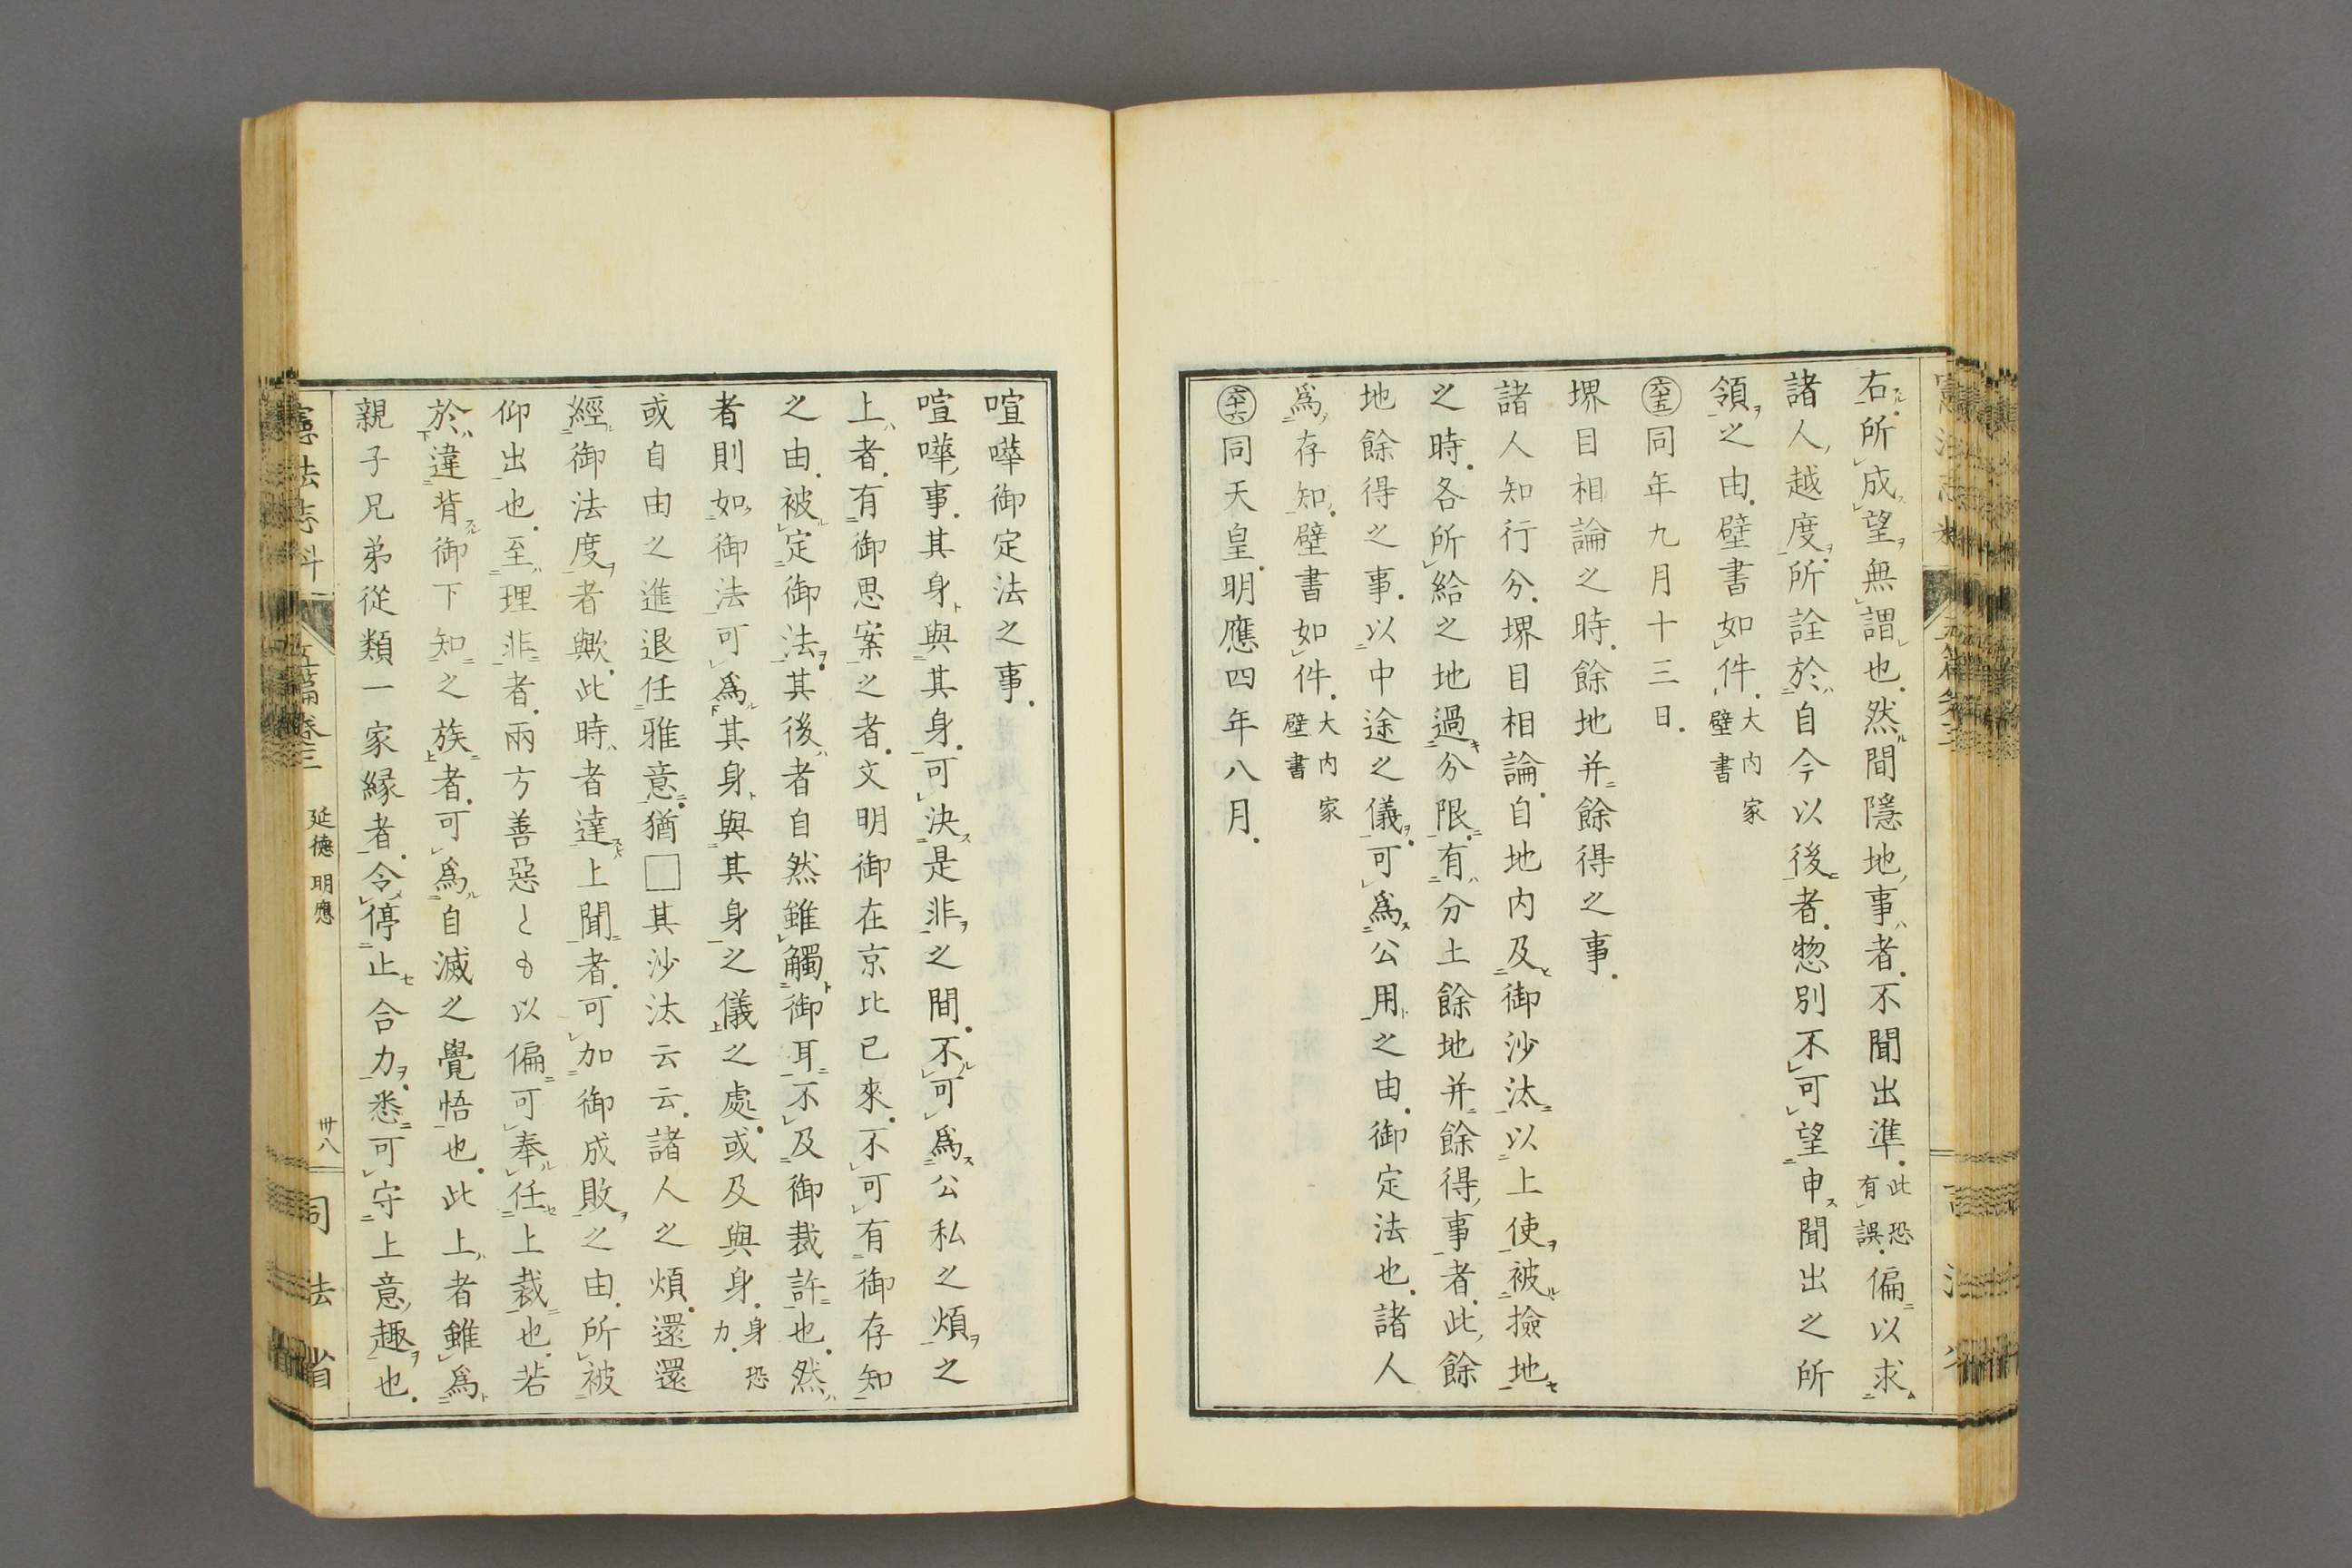 右所成望無謂也然間隱地事者不聞出準此恐有誤偏以求
諸人越度所詮於自今以後者惣別不可望申聞出之所
領之由壁書如件大内家壁書
六十五同年九月十三日
堺目相論之時餘地并餘得之事
諸人知行分堺目相論自地内及御沙汰以上使被撿地
之時各所給之地過分限有分土餘地并餘得事者此餘
地餘得之事以中途之儀可爲公用之由御定法也諸人
爲存知壁書如件大内家壁書
六十六同天皇明應四年八月
喧嘩御定法之事
喧嘩事其身與其身可決是非之間不可爲公私之煩之
上者有御思案之者文明御在京比已來不可有御存知
之由被定御法其後者自然雖觸御耳不及御裁許也然
者則如御法可爲其身與其身之儀之處或及與身身恐力
或自由之進退任雅意猶□其沙汰云云諸人之煩還還
經御法度者歟此時者達上聞者可加御成敗之由所被
仰出也至理非者兩方善惡とも以偏可奉任上裁也若
於違背御下知之族者可爲自滅之覺悟也此上者雖爲
親子兄弟從類一家縁者令停止合力悉可守上意趣也
憲法志料 五篇卷三 延德 明應 卅八 司法省